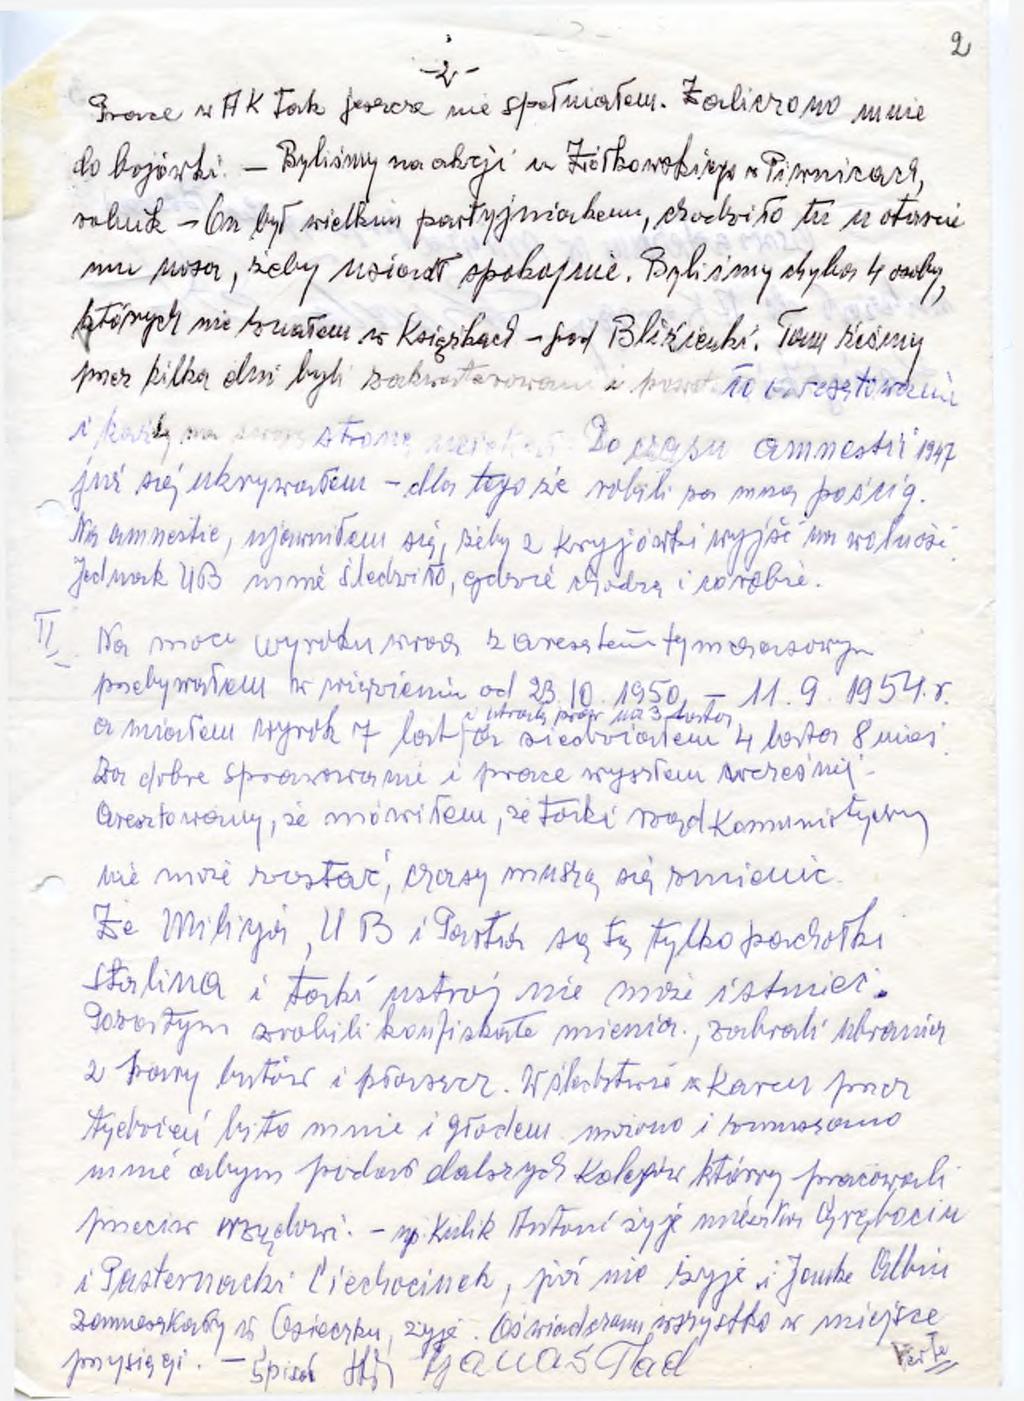 2
-2-
Prace w AK tak jeszcze nie spełniałem. Zaliczono mnie
do bojówki. – Byliśmy na akcji u Ziółkowskiego w Piwnicach,
rolnik – On był wielkim partyjniakem, chodziło tu u otarcie
mu nosa, żeby usiadł spokojnie. Byliśmy chyba 4 osoby,
których nie znałem w Książkach – pod Blizienki. Tam żeśmy
przez kilka dni byli zakwaterowani i aresztowania
i każdy na swoją stronę uciekał. Do czasu amnestii 1947
już się ukrywałem – dla tego że robili za mną pościg.
Na amnestie, ujawniłem się, żeby z kryjówki wyjść na wolność.
Jednak UB mnie śledziło, gdzie chodzę i co robie.
II Na mocy wyroku wraz z aresztem tymczasowym
przebywałem w więzieniu od 23.10.1950 – 11.9.1954 r.
i utratę praw na 3 lata
a miałem wyrok 7 lat, siedziałem 4 lata 8 mieś.
Za dobre sprawowanie i prace wyszłem wcześniej –
Aresztowany, że mówiłem, że taki rząd komunistyczny
nie może zostać, czasy muszą się zmienić.
Że Milicja, UB i Partia są to tylko pachołki
Stalina i taki ustrój nie może istnieć.
Pozatym zrobili konfiskate mienia, zabrali ubrania
2 pary butów i płaszcz. W śledztwie w karcu przez
tydzień bito mnie i głodem morzono i zmuszano
mnie abym podał dalszych kolegów którzy pracowali
przeciw rządowi. – np. Kulik Antoni żyje mieszka Grębocin
i Pasternacki Ciechocinek, już nie żyje i Janke Albin
zamieszkały w Osieczku, żyje. Oświadczam wszystko w miejsce
przysięgi. – Spisał Janas Tad
Verte